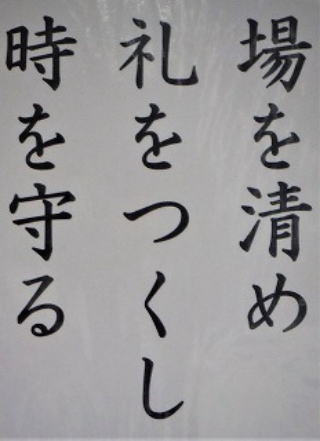 場を清め
礼をつくし
時を守る